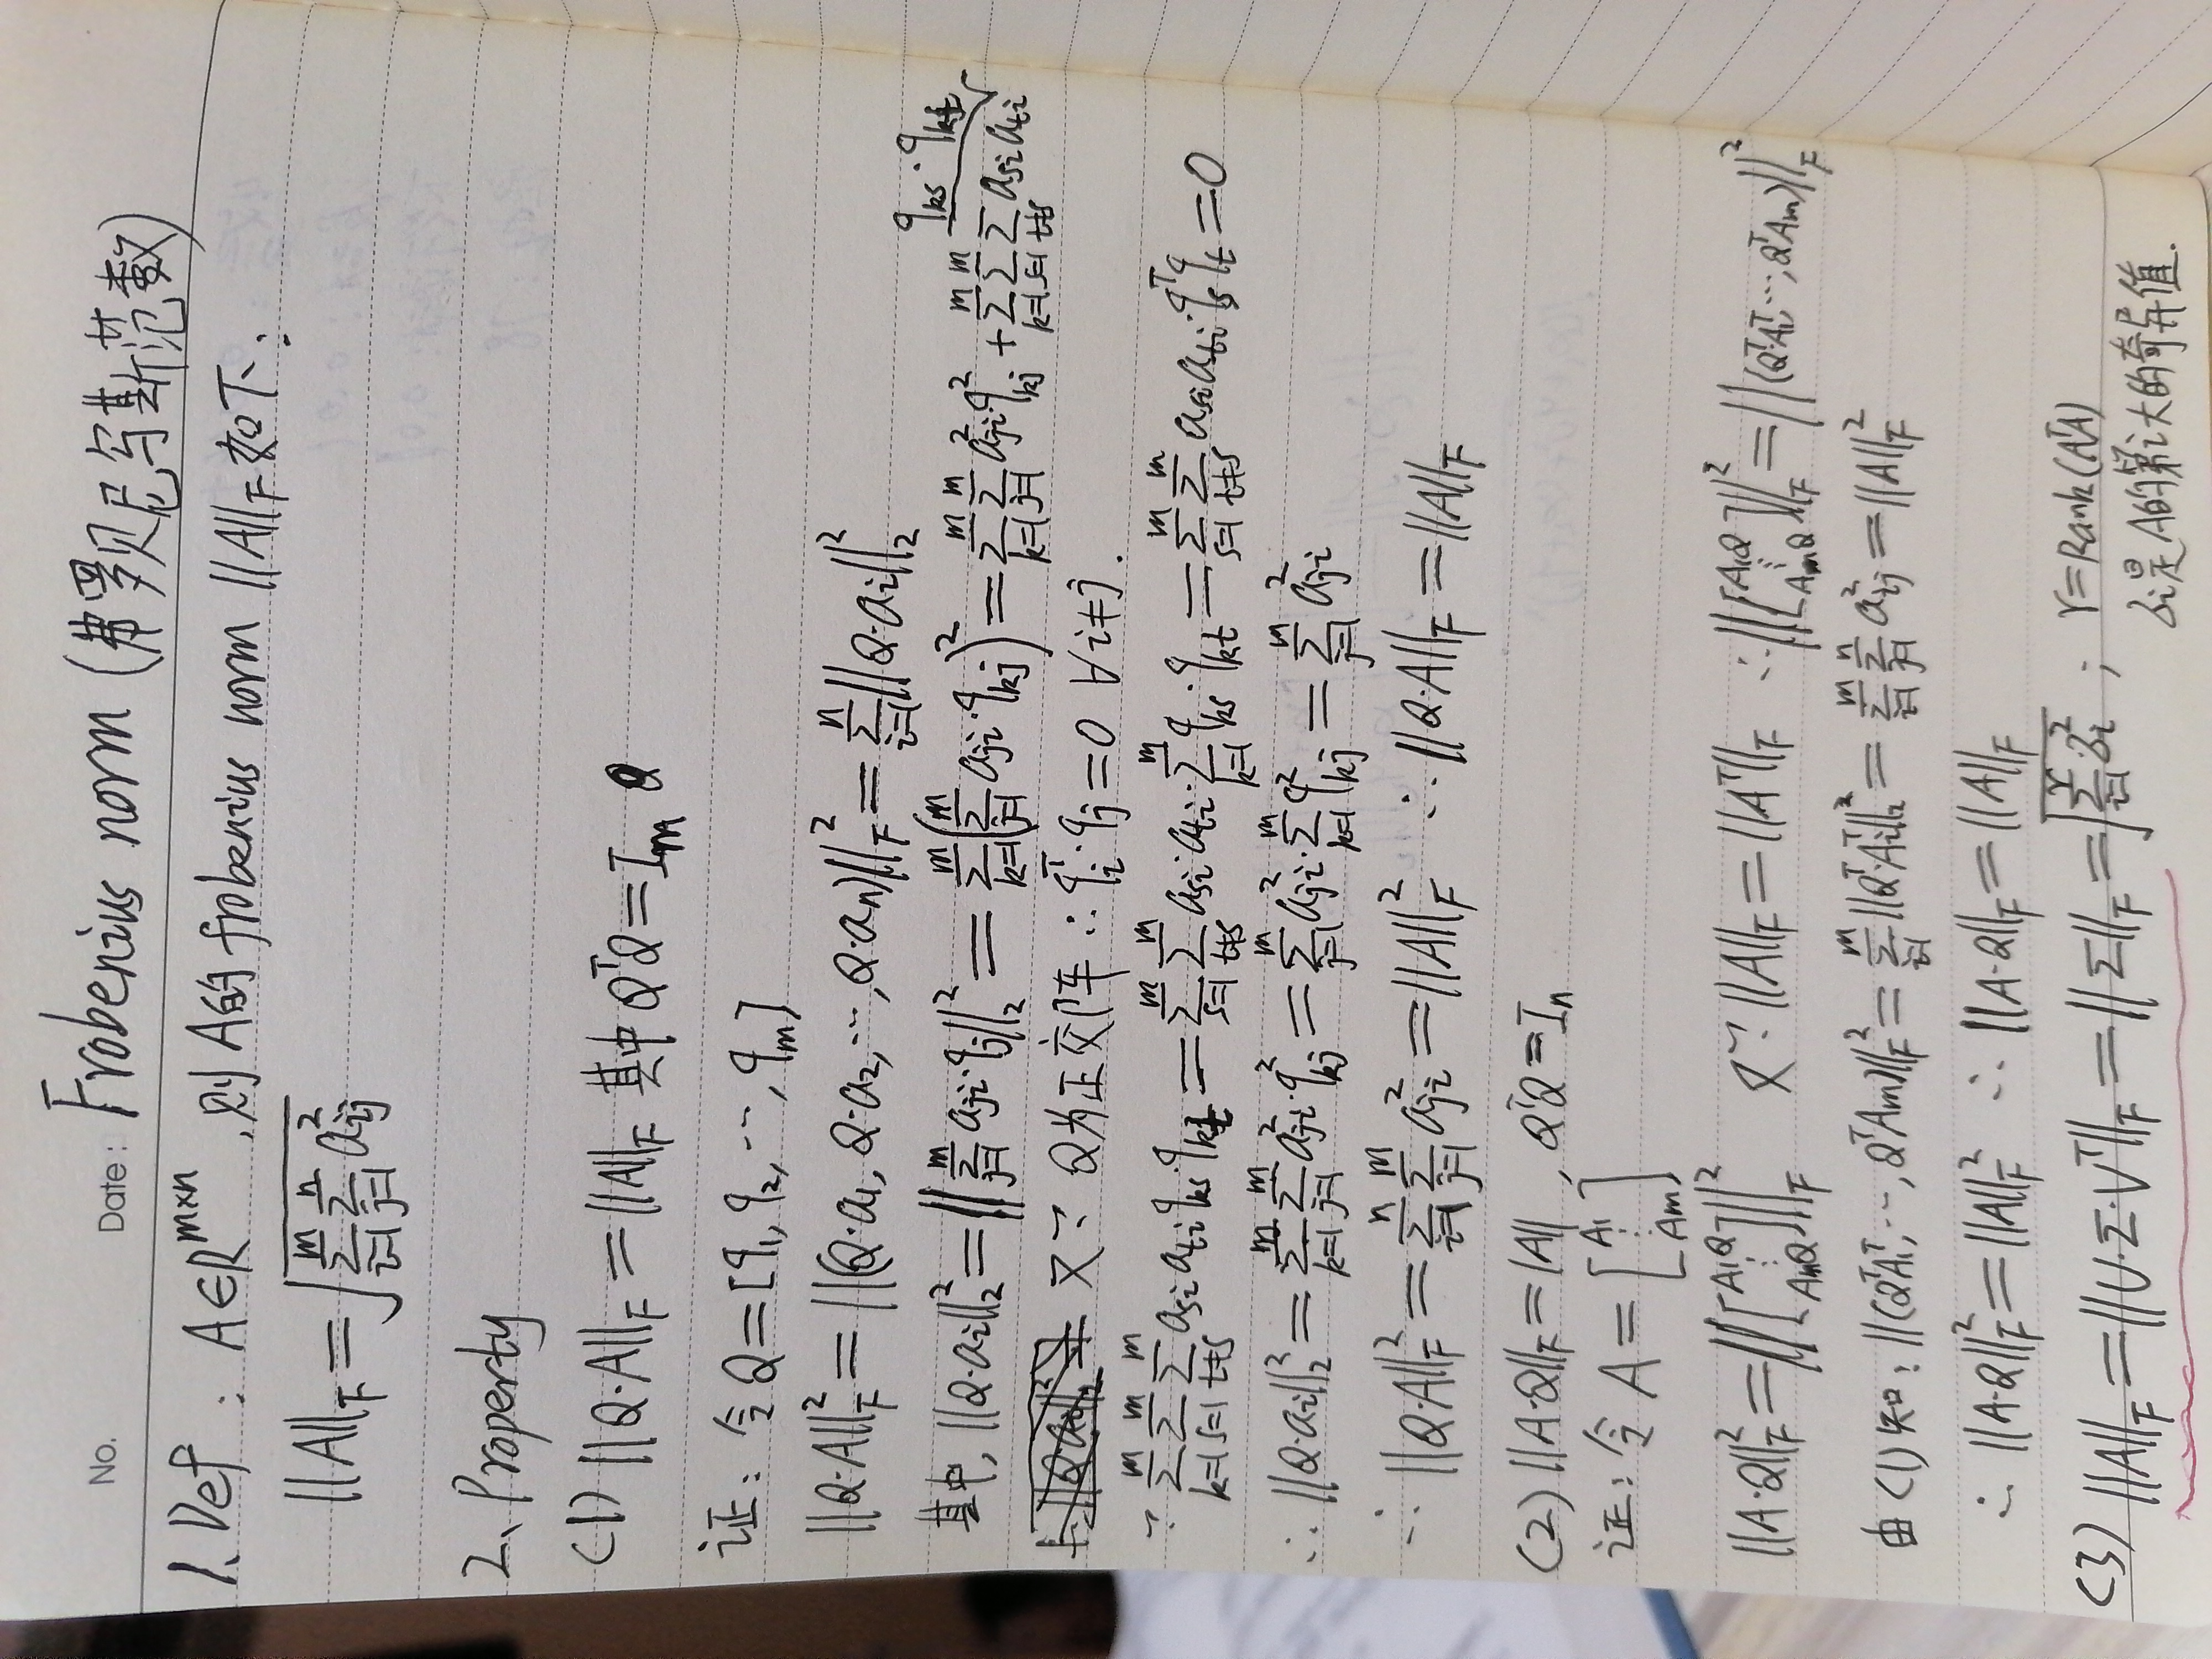 No. Date: Frobenius norm (弗罗贝尼乌斯范数)
1、Def: A∈R^{m×n},则A的frobenius norm ||A||_F如下:
||A||_F = √(∑_{i=1}^{m} ∑_{j=1}^{n} a_{ij}^2)
2、Property
(1) ||Q·A||_F = ||A||_F 其中 Q^TQ = I_m
证: 令Q = [q_1, q_2, ⋯, q_m]
||Q·A||_F^2 = ||(Q·a_1, Q·a_2, ⋯, Q·a_n)||_F^2 = ∑_{i=1}^{n} ||Q·a_i||_2^2
其中, ||Q·a_i||_2^2 = ||∑_{j=1}^{m} a_{ji}·q_j||_2^2 = ∑_{k=1}^{m} (∑_{j=1}^{m} a_{ji}·q_{kj})^2 = ∑_{k=1}^{m} ∑_{j=1}^{m} a_{ji}^2·q_{kj}^2 + ∑_{k=1}^{m} ∑_{s=1}^{m} ∑_{t≠s} a_{si} a_{ti} q_{ks}·q_{kt}
又∵ Q为正交阵 ∴ q_i^T·q_j = 0 ∀i≠j.
∵ ∑_{k=1}^{m} ∑_{s=1}^{m} ∑_{t≠s}^{m} a_{si} a_{ti} q_{ks}·q_{kt} = ∑_{s=1}^{m} ∑_{t≠s}^{m} a_{si}·a_{ti}·∑_{k=1}^{m} q_{ks}·q_{kt} = ∑_{s=1}^{m} ∑_{t≠s}^{m} a_{si} a_{ti}·q_s^T q_t = 0
∴ ||Q·a_i||_2^2 = ∑_{k=1}^{m} ∑_{j=1}^{m} a_{ji}^2·q_{kj}^2 = ∑_{j=1}^{m} a_{ji}^2·∑_{k=1}^{m} q_{kj}^2 = ∑_{j=1}^{m} a_{ji}^2
∴ ||Q·A||_F^2 = ∑_{i=1}^{n} ∑_{j=1}^{m} a_{ji}^2 = ||A||_F^2 ∴ ||Q·A||_F = ||A||_F
(2) ||A·Q||_F = |A||, Q^TQ = I_n
证: 令 A = [A_1 ⋮ A_m]
||A·Q||_F^2 = ||[A_1Q ⋮ A_mQ]||_F^2 又∵ ||A||_F = ||A^T||_F ∴ ||[A_1Q ⋮ A_mQ]||_F^2 = ||(Q^TA_1^T, ⋯, Q^TA_m)||_F^2
由(1)知: ||(Q^TA_1^T, ⋯, Q^TA_m)||_F^2 = ∑_{i=1}^{m} ||Q^T·A_i^T||_2^2 = ∑_{i=1}^{m} ∑_{j=1}^{n} a_{ij}^2 = ||A||_F^2
∴ ||A·Q||_F^2 = ||A||_F^2 ∴ ||A·Q||_F = ||A||_F
(3) ||A||_F = ||U·Σ·V^T||_F = ||Σ||_F = √(∑_{i=1}^{r} δ_i^2) ; r = Rank(A^TA)
δ_i是A的第i大的奇异值.